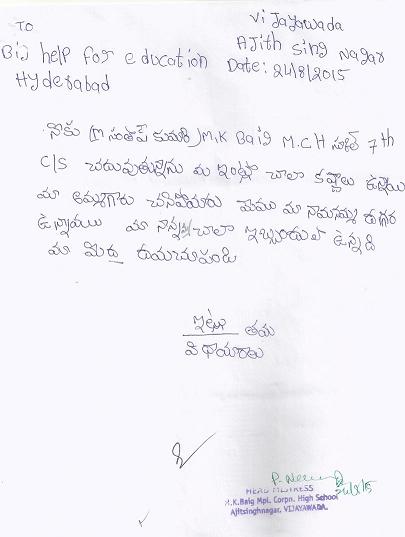 To
Vijayawada
Ajith Sing Nagar
Date: 24/8/2015
Big help for education
Hyderabad
నేను (M సంతోషి కుమారి) M.K Baig M.C.H స్కూల్ 7th
C/S చదువుతున్నాను మా ఇంట్లో చాలా కష్టాలు ఉన్నాయి
మా అమ్మగారు చనిపోయారు మేము మా నానమ్మ దగ్గర
ఉన్నాము మా నాన్న చాలా ఇబ్బందులో ఉన్నది
మా మీద దయచూపండి
ఇట్లు తమ
విధేయురాలు
HEAD MISTRESS
M.K.Baig Mpl. Corpn. High School
Ajitsinghnagar, VIJAYAWADA.